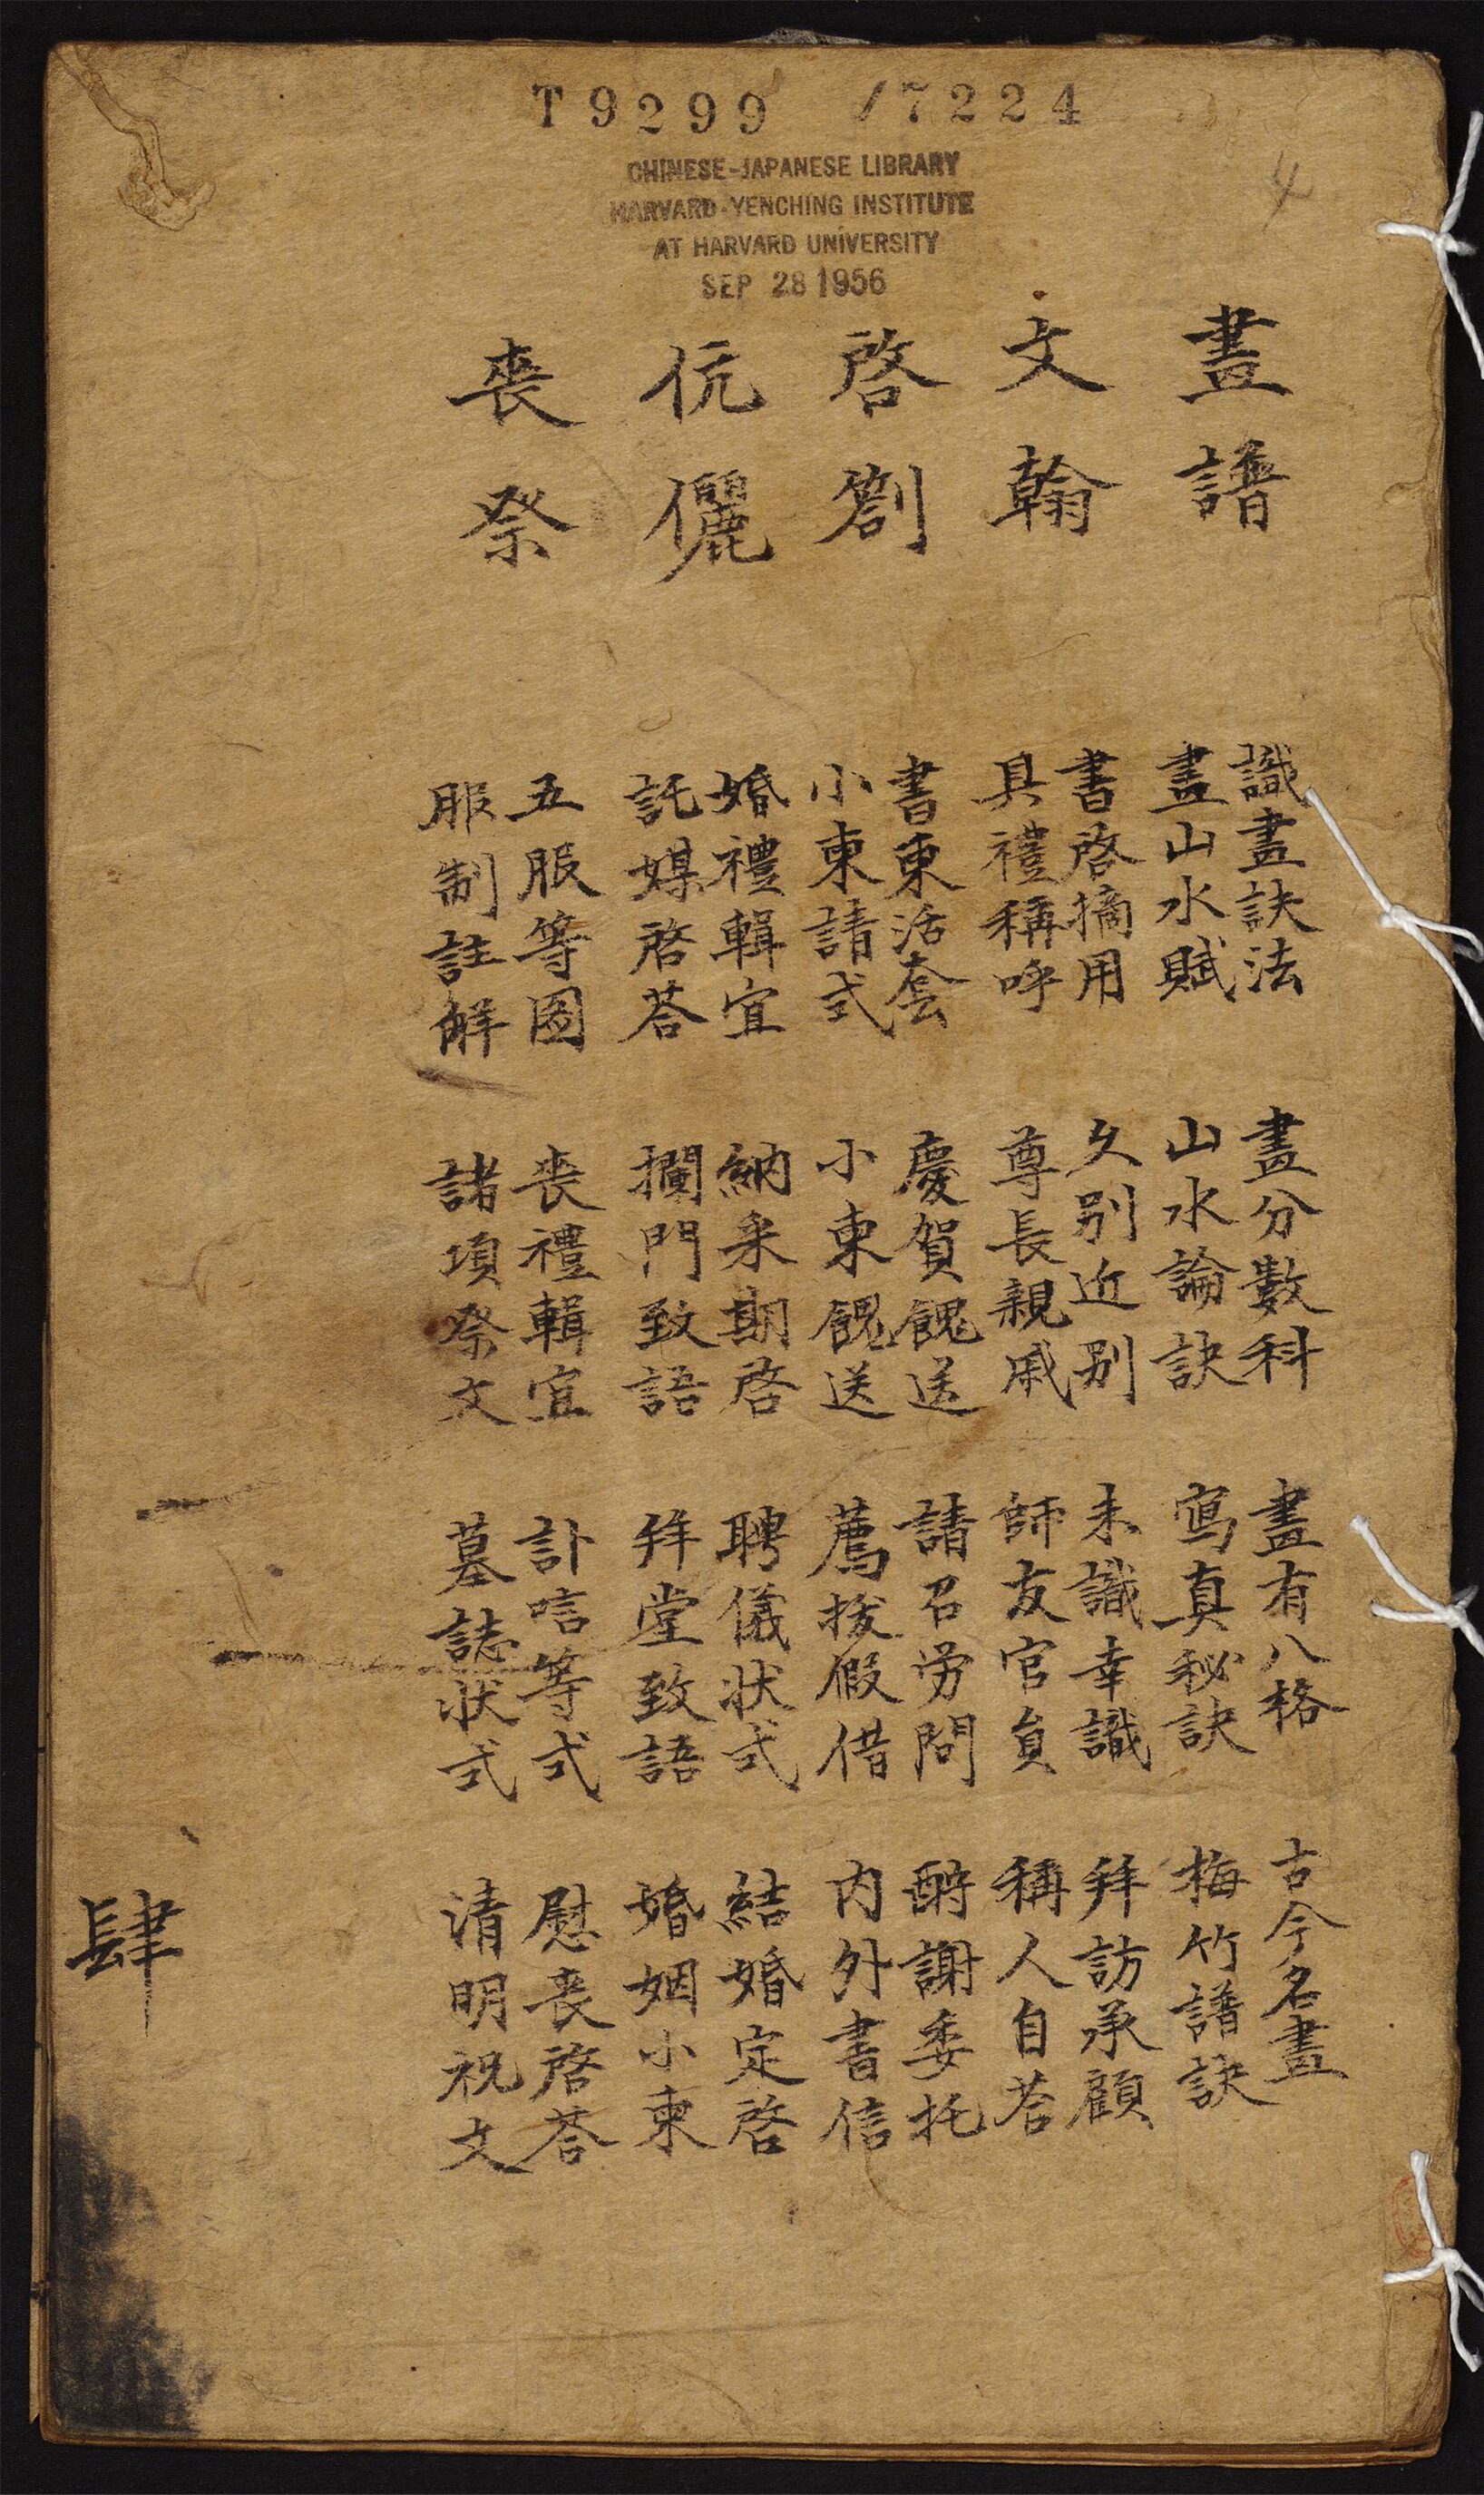 T9299 /7224
CHINESE-JAPANESE LIBRARY
HARVARD-YENCHING INSTITUTE
AT HARVARD UNIVERSITY
SEP 28 1956
4
畫譜
識畫訣法 畫分數科 畫有八格 古今名畫
畫山水賦 山水論訣 寫真秘訣 梅竹譜訣
文翰
書啓摘用 久别近别 未識幸識 拜訪承顧
具禮稱呼 尊長親戚 師友官員 稱人自荅
啓劄
書柬活套 慶賀餽送 請召劳問 酧謝委托
小柬請式 小柬餽送 薦拔假借 内外書信
伉儷
婚禮輯宜 納采期啓 聘儀狀式 結婚定啓
託媒啓荅 攔門致語 拜堂致語 婚姻小柬
喪祭
五服等圖 喪禮輯宜 訃唁等式 慰喪啓荅
服制註解 諸項祭文 墓誌狀式 清明祝文
肆